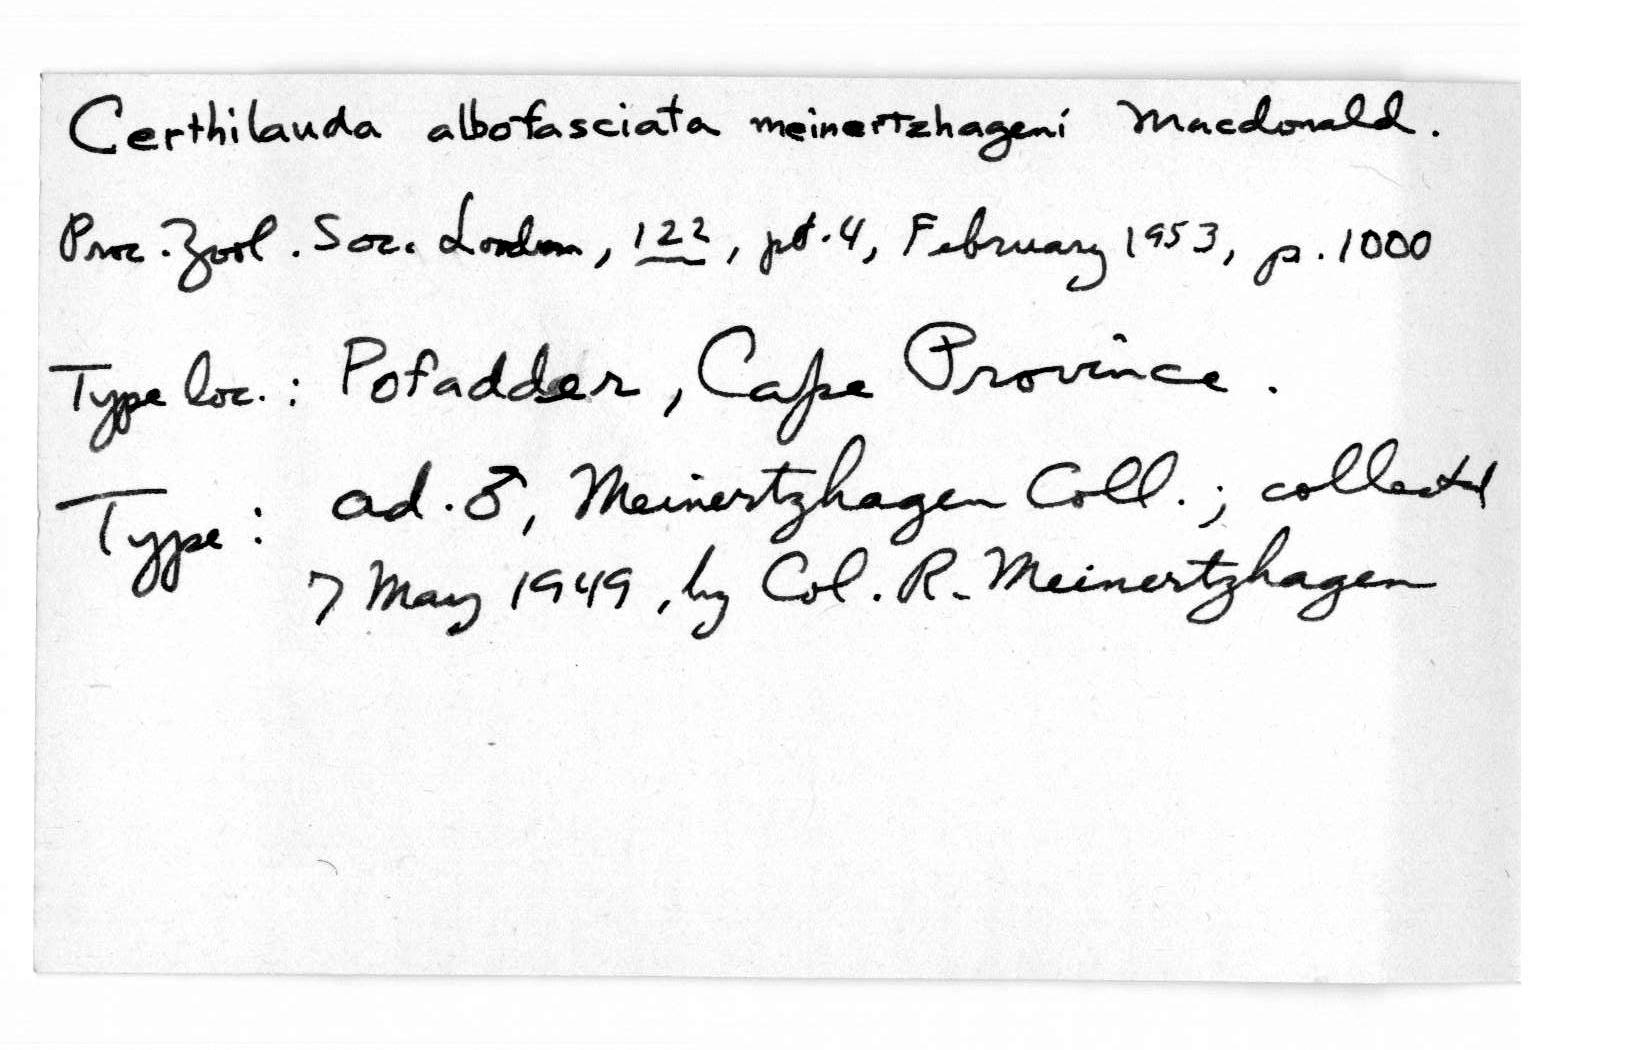 Certhilauda albofasciata meinertzhageni Macdonald.
Proc. Zool. Soc. London, 122, pt. 4, February 1953, p. 1000
Type loc. : Pofadder, Cape Province.
Type : ad. ♂, Meinertzhagen Coll. ; collected
7 May 1949, by Col. R. Meinertzhagen